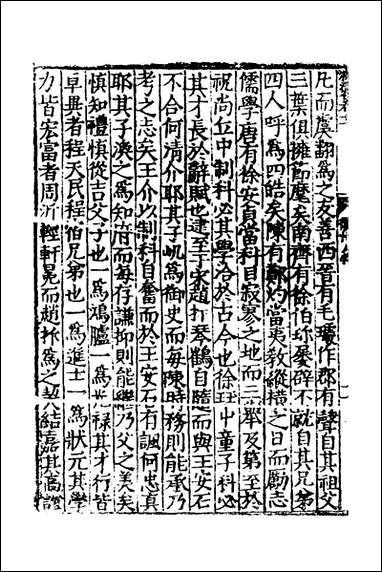 凡而虞翻為之友吾西晉有毛璩作郡有聲自其祖父
三葉俱擁節麾矣南齊有徐伯珍屢辟不就自其兄弟
四人呼為四皓矣陳有鄭灼當夷敎縱橫之日而勵志
儒學唐有徐安貞當科目寂寞之地而三舉及第至於
祝尚丘中制科必其學洽於古今也徐珏中童子科必
其才長於辭賦也逮至于宋趙打琴鶴自隨而與王安石
不合何清介耶其子屼為御史而每陳時務則能承乃
考之志矣王介以制科自奮而於王安石有諷何忠真
耶其子渙之為知府而每存謙抑則能繼乃父之美矣
慎知禮慎從吉父子也一為鴻臚一為光祿其才行皆
卓異者程天民程伯兄弟也一為進士一為狀元其學
力皆宏富者周沂輕軒冕而趙抃為之契結嘉其高誼